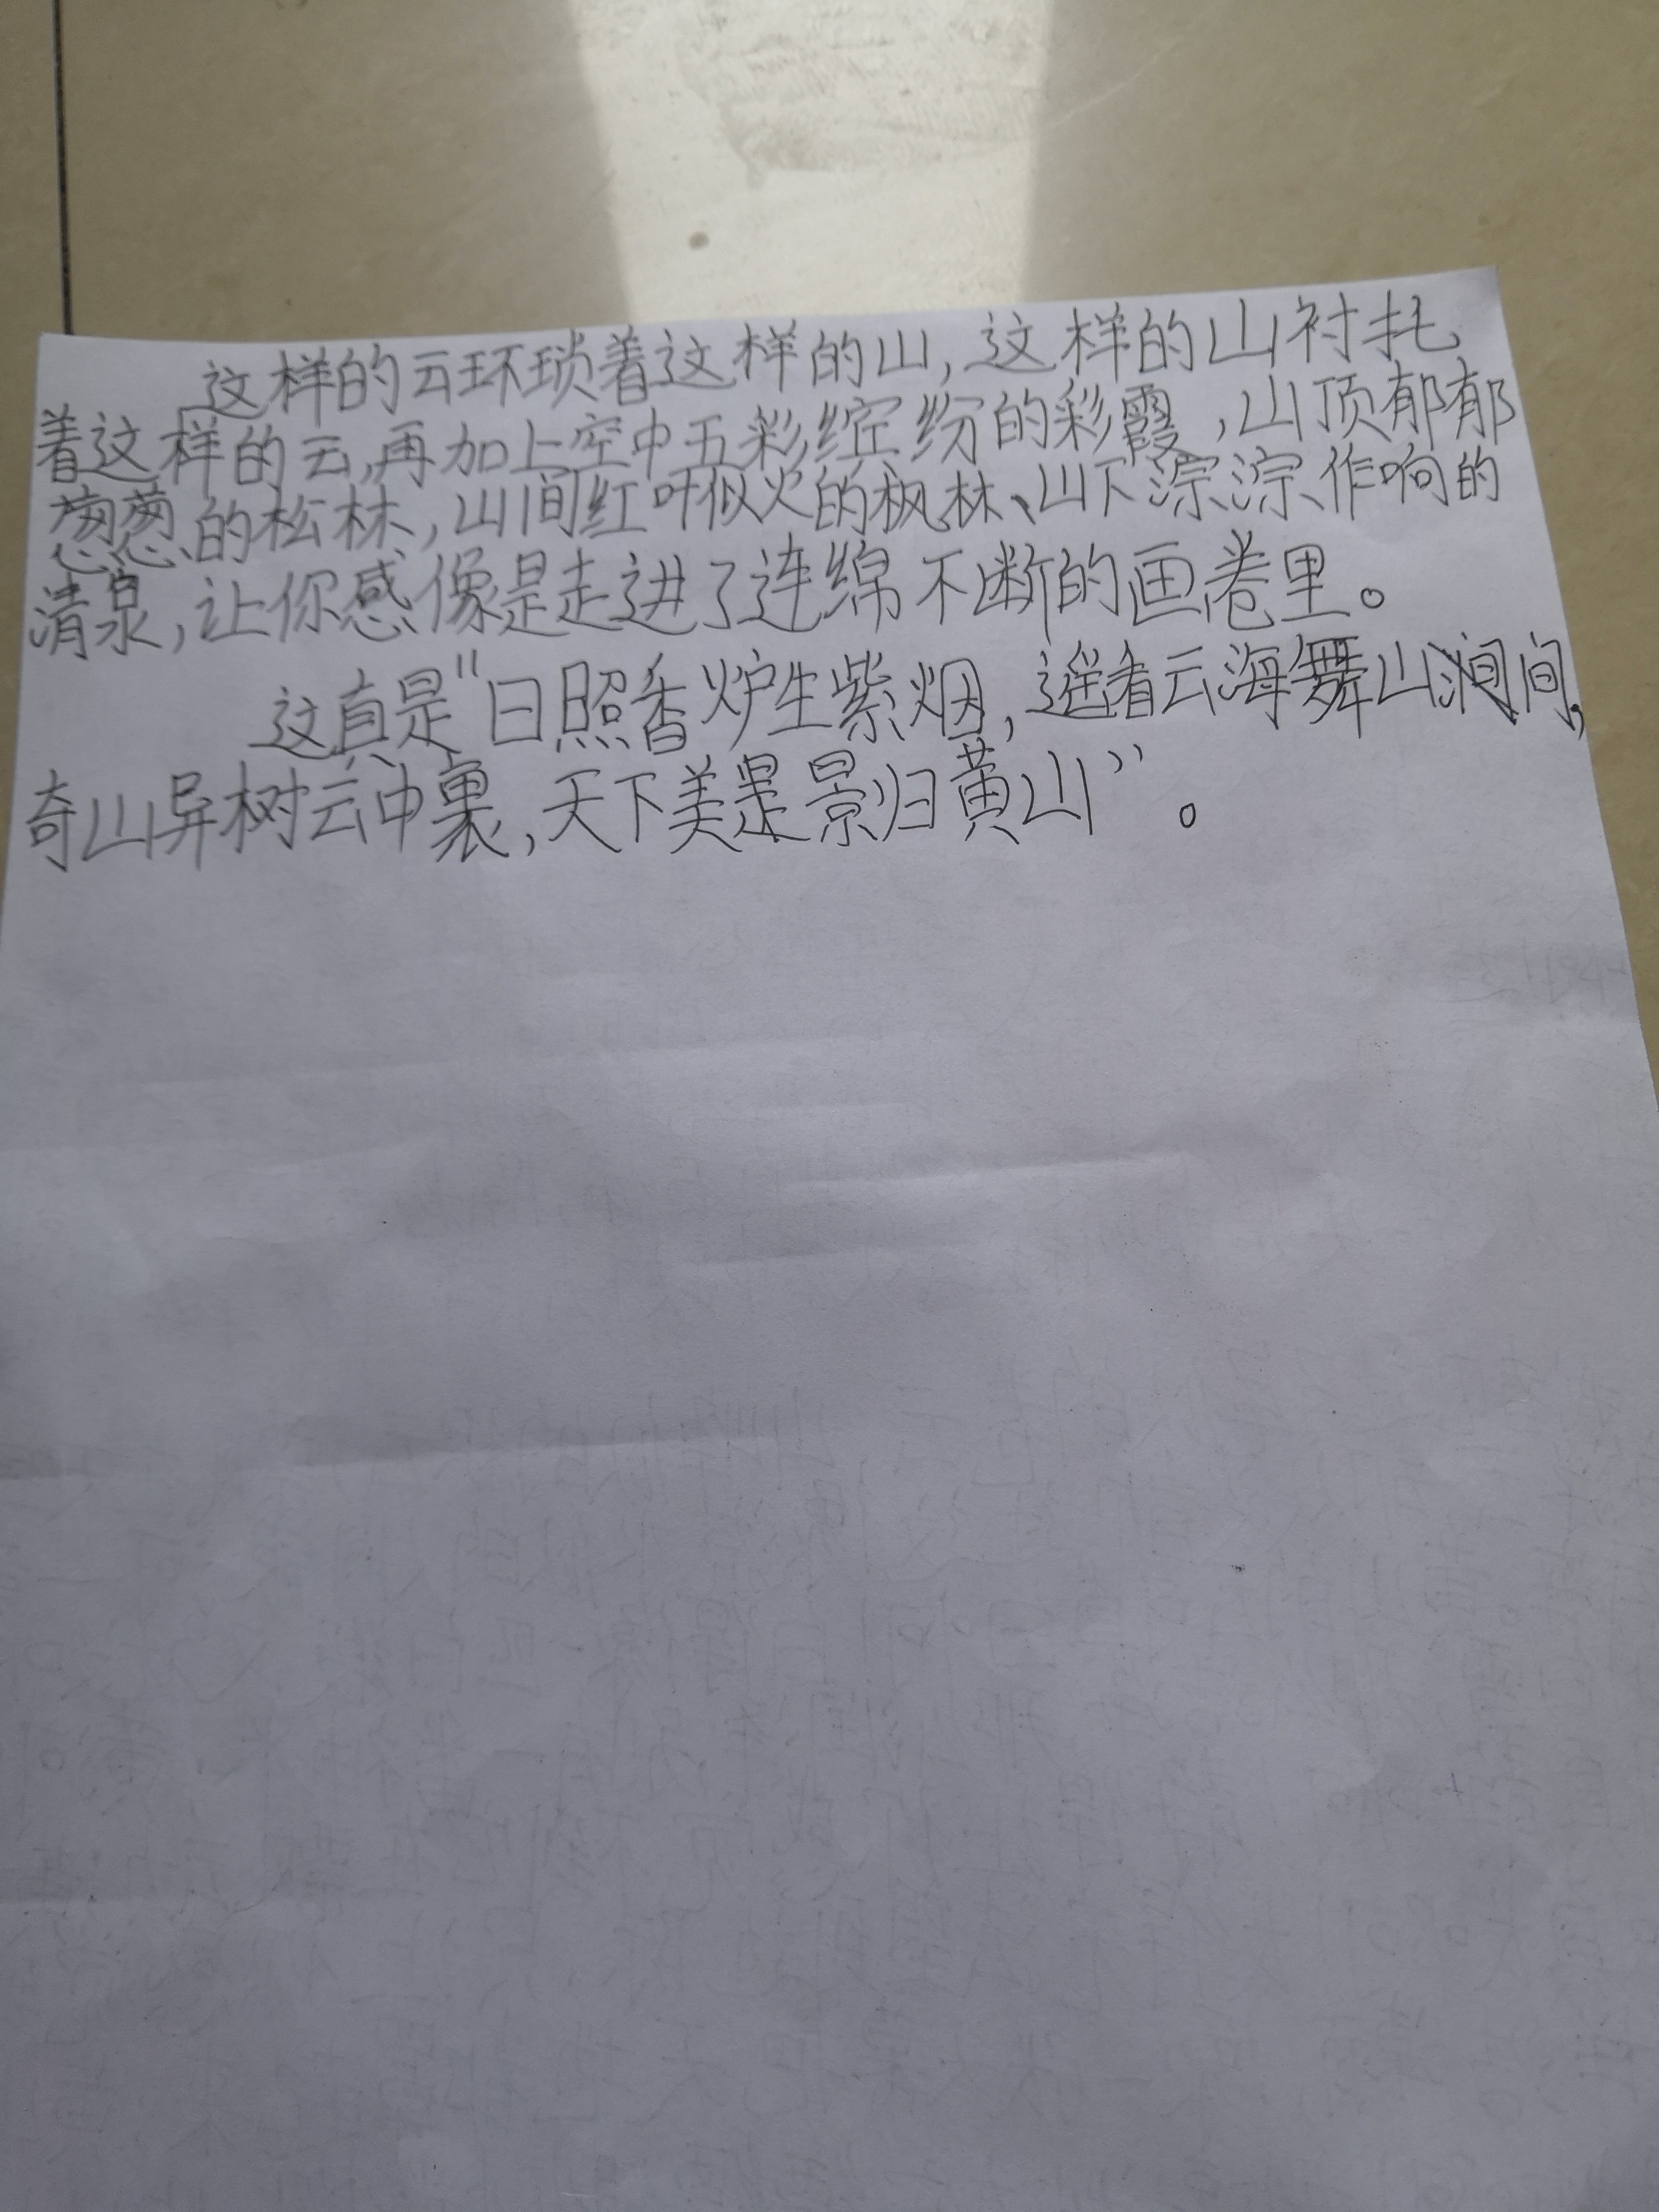 这样的云环琐着这样的山,这样的山衬托
着这样的云,再加上空中五彩缤纷的彩霞,山顶郁郁
葱葱的松林,山间红叶似火的枫林、山下淙淙作响的
清泉,让你感像是走进了连绵不断的画卷里。
这真是"日照香炉生紫烟,遥看云海舞山间,
奇山异树云中裹,天下美景归黄山"。